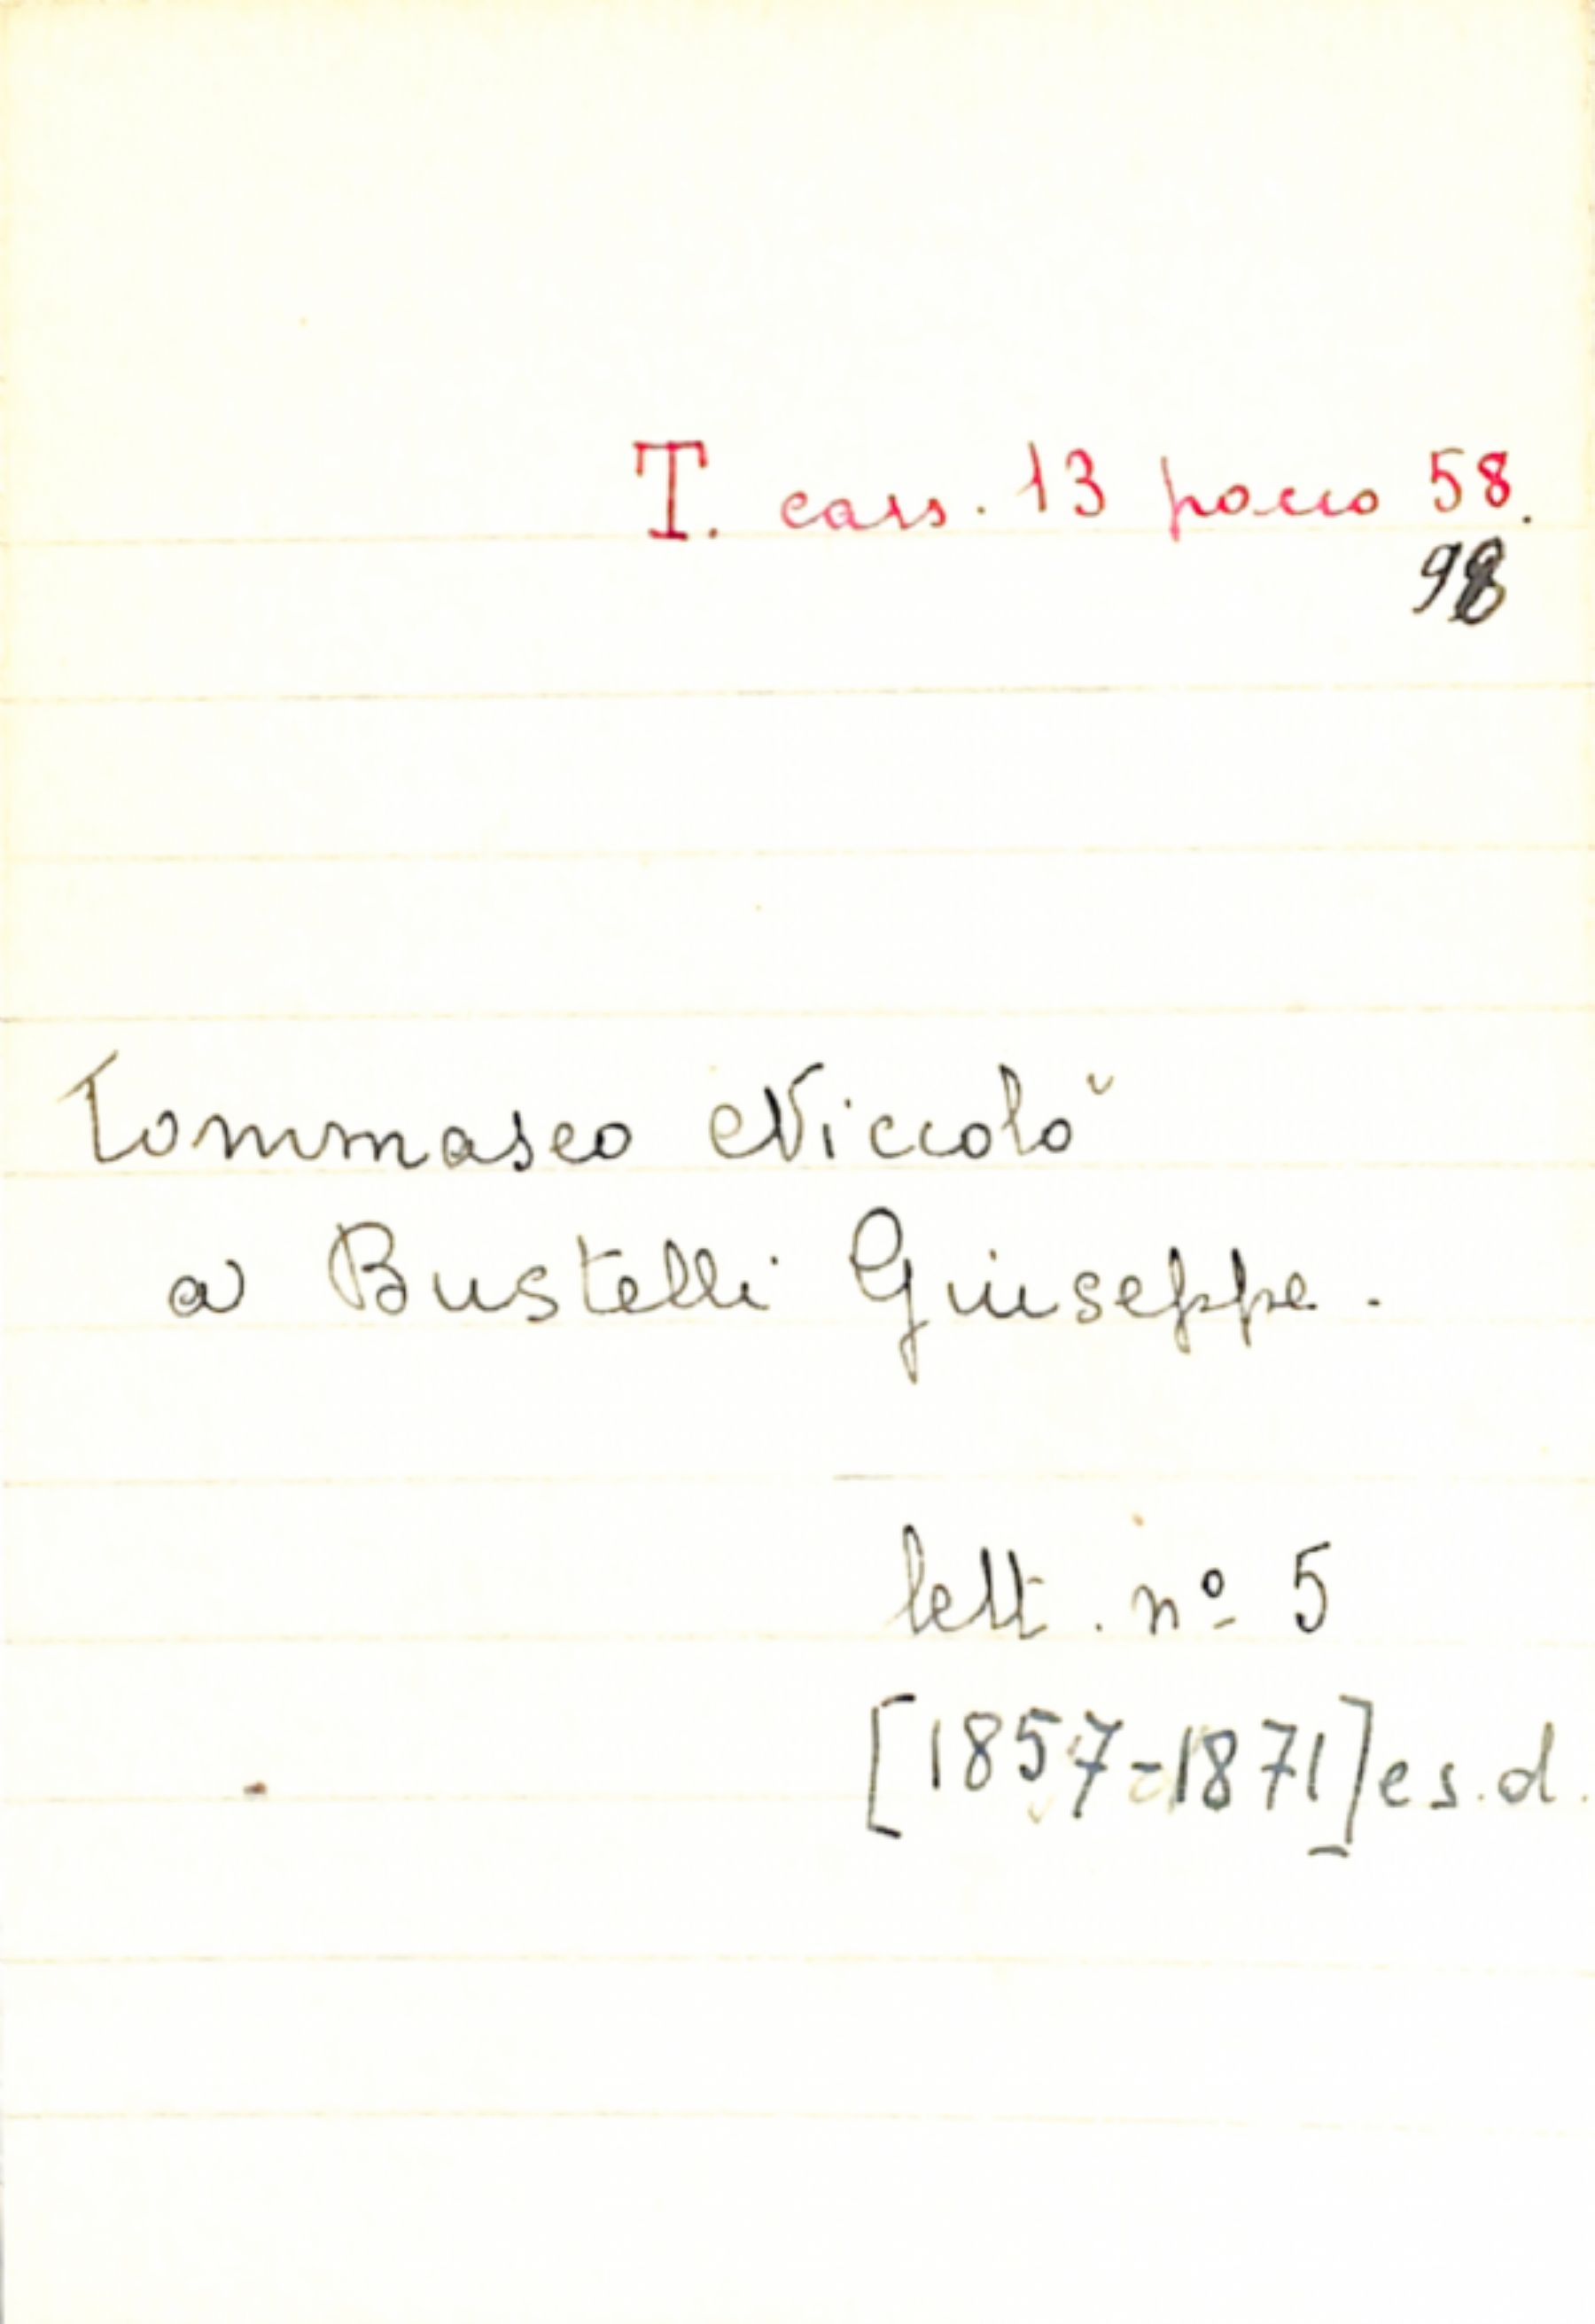 T. cass. 13 pacco 58.
98
Tommaseo Niccolò
a Bustelli Giuseppe.
lett. nº 5
[1857-1871] e s.d.